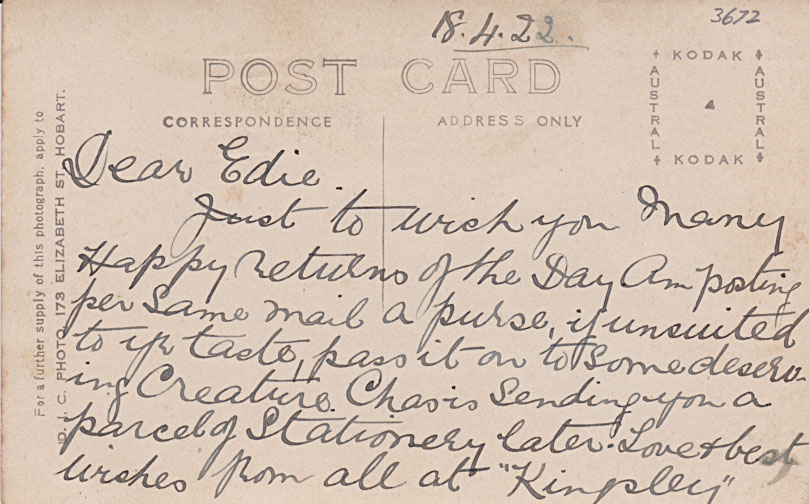 18.4.22.
3672
POST CARD
CORRESPONDENCE
ADDRESS ONLY
KODAK
AUSTRAL
AUSTRAL
KODAK
For a further supply of this photograph, apply to
D. J. C. PHOTO, 173 ELIZABETH ST. HOBART.
Dear Edie.
Just to wish you Many
Happy returns of the Day Am posting
per same mail a purse, if unsuited
to yr taste, pass it on to some deserv-
ing Creature. Chas is sending you a
parcel of Stationery later. Love & best
wishes from all at "Kingsley"